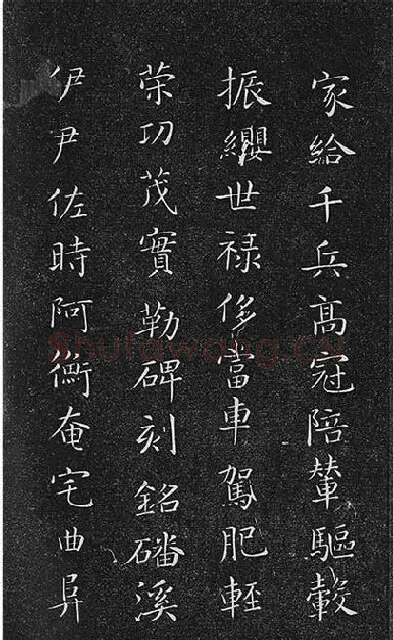 家給千兵髙冠陪輦驅轂
振纓世禄侈富車駕肥輕
荣功茂實勒碑刻銘磻溪
伊尹佐時阿衡奄宅曲阜
shufawang.cn